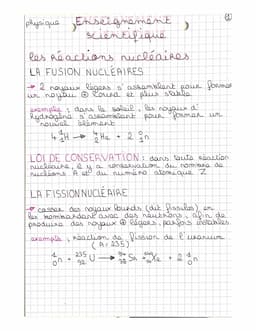 physique
Enseignement
scientifique
les réactions nucléaires
LA FUSION NUCLÉAIRES
→ 2 noyaux légers s'assemblent pour former
un noyau ⊕ lourd et plus stable.
exemple : dans le soleil, les noyaux d'
hydrogène s'assemblent pour former un
nouvel élément
4 ¹₁H → ⁴₂He + 2 ⁰₁n
LOI DE CONSERVATION : dans toute réaction
nucléaire, il y a conservation du nombre de
nucléons A et du numéro atomique Z.
LA FISSION NUCLÉAIRE
→ casser des noyaux lourds (dit fissiles) en
les bombardant avec des neutrons, afin de
produire des noyaux ⊕ légers, parfois instables
exemple : réaction de fission de l'uranium
(A = 235)
¹₀n + ²³⁵₉₂U → ⁹⁴₃₈Sr + Xe + 2 ¹₀n